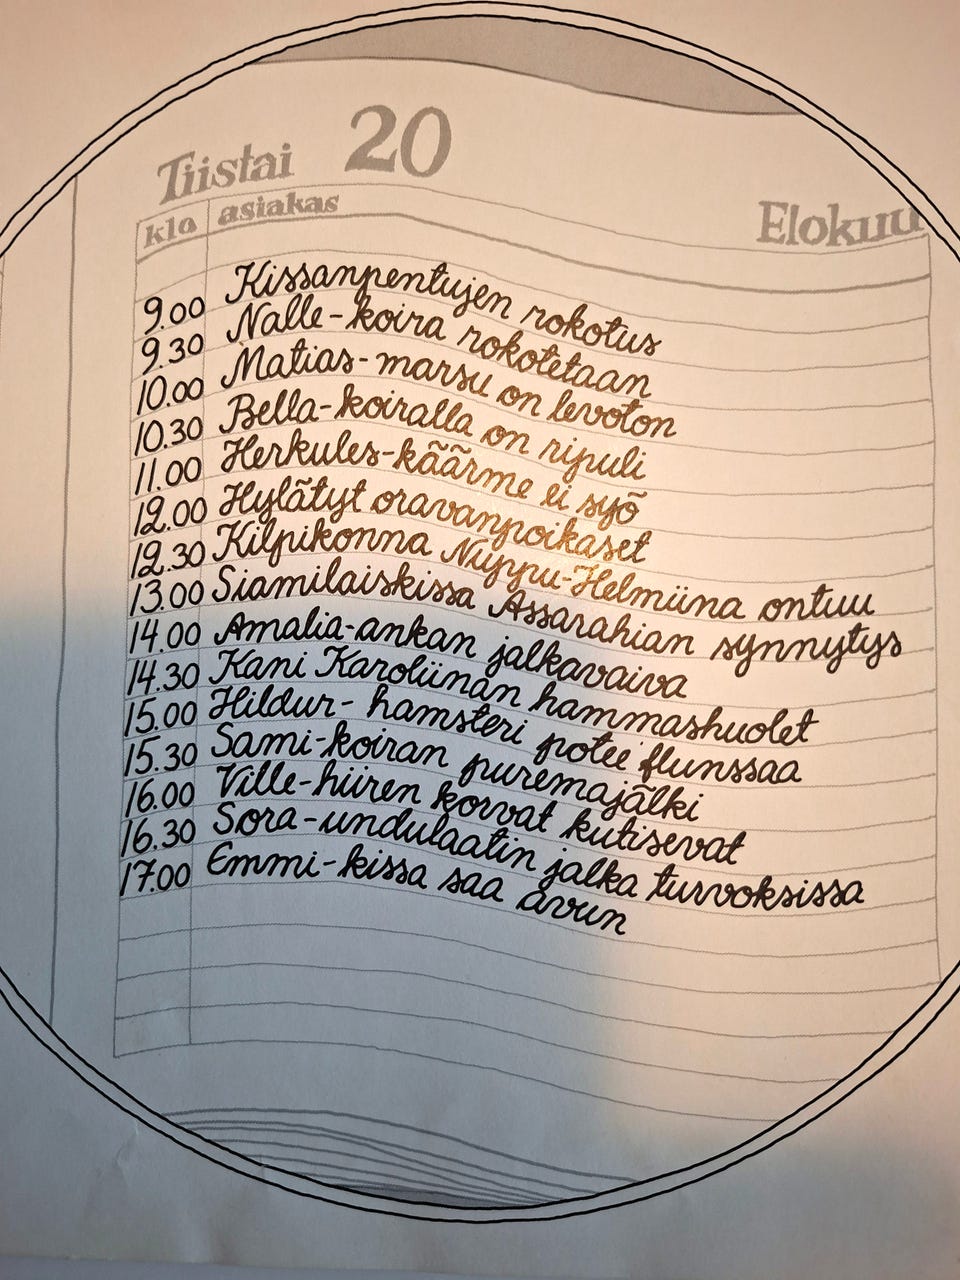 Tiistai 20
Elokuu
klo asiakas
9.00 Kissanpentujen rokotus
9.30 Nalle-koira rokotetaan
10.00 Matias-marsu on levoton
10.30 Bella-koiralla on ripuli
11.00 Herkules-käärme ei syö
12.00 Hylätyt oravanpoikaset
12.30 Kilpikonna Nuppu-Helmiina ontuu
13.00 Siamilaiskissa Assarahian synnytys
14.00 Amalia-ankan jalkavaiva
14.30 Kani Karoliinan hammashuolet
15.00 Hildur-hamsteri potee flunssaa
15.30 Sami-koiran puremajälki
16.00 Ville-hiiren korvat kutisevat
16.30 Sora-undulaatin jalka turvoksissa
17.00 Emmi-kissa saa avun